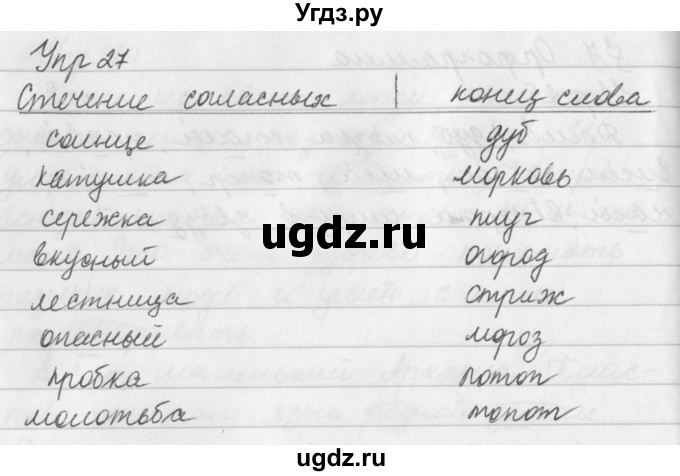 Угдз.ру
Упр 27
Стечение согласных | конец слова
солнце дуб
катушка морковь
сережка плуг
вкусный огород
лестница стриж
опасный мороз
пробка потоп
молотьба топот
©ugdz.ru
Угдз.ру